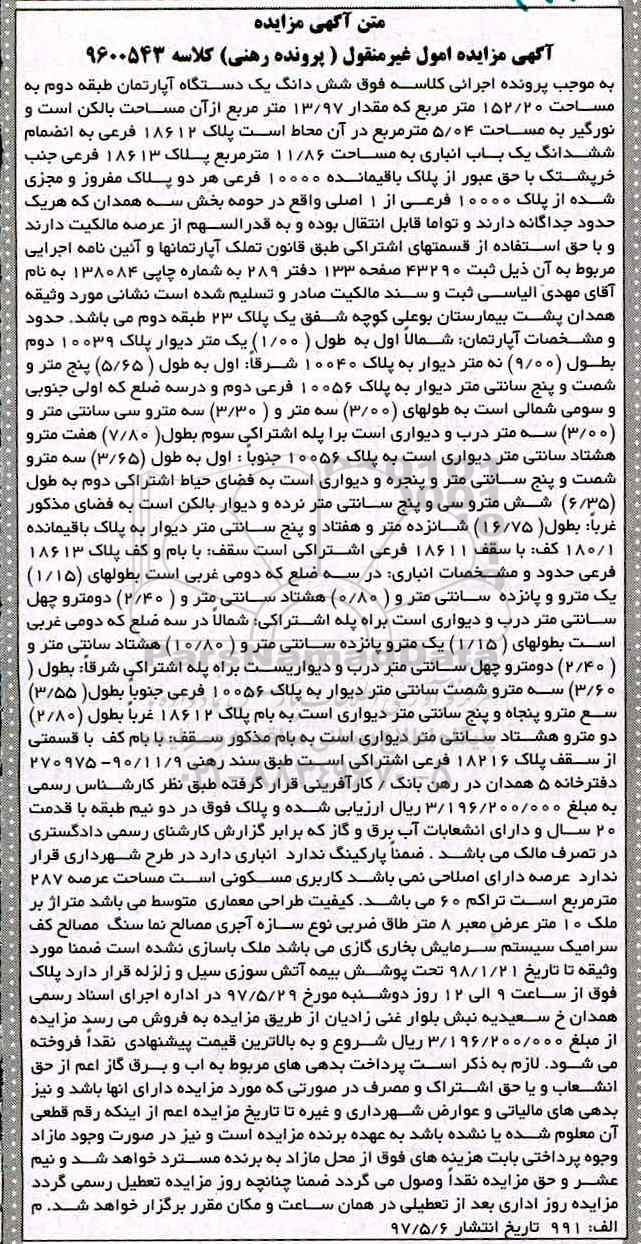 متن آگهی مزایده
آگهی مزایده امول غیرمنقول ( پرونده رهنی) کلاسه ۹۶۰۰۵۴۳
به موجب پرونده اجرائی کلاسه فوق شش دانگ یک دستگاه آپارتمان طبقه دوم به
مساحت ۱۵۲/۲۰ متر مربع که مقدار ۱۳/۹۷ متر مربع ازآن مساحت بالکن است و
نورگیر به مساحت ۵/۰۴ مترمربع در آن محاط است پلاک ۱۸۶۱۲ فرعی به انضمام
ششدانگ یک باب انباری به مساحت ۱۱/۸۶ مترمربع پلاک ۱۸۶۱۳ فرعی جنب
خرپشتک با حق عبور از پلاک باقیمانده ۱۰۰۰۰ فرعی هر دو پلاک مفروز و مجزی
شده از پلاک ۱۰۰۰۰ فرعی از ۱ اصلی واقع در حومه بخش سه همدان که هریک
حدود جداگانه دارند و تواما قابل انتقال بوده و به قدرالسهم از عرصه مالکیت دارند
و با حق استفاده از قسمتهای اشتراکی طبق قانون تملک آپارتمانها و آئین نامه اجرایی
مربوط به آن ذیل ثبت ۴۳۲۹۰ صفحه ۱۳۳ دفتر ۲۸۹ به شماره چاپی ۱۳۸۰۸۴ به نام
آقای مهدی الیاسی ثبت و سند مالکیت صادر و تسلیم شده است نشانی مورد وثیقه
همدان پشت بیمارستان بوعلی کوچه شفق یک پلاک ۲۳ طبقه دوم می باشد. حدود
و مشخصات آپارتمان: شمالاً اول به طول ( ۱/۰۰) یک متر دیوار پلاک ۱۰۰۳۹ دوم
بطول (۹/۰۰) نه متر دیوار به پلاک ۱۰۰۴۰ شرقاً: اول به طول ( ۵/۶۵) پنج متر و
شصت و پنج سانتی متر دیوار به پلاک ۱۰۰۵۶ فرعی دوم و درسه ضلع که اولی جنوبی
و سومی شمالی است به طولهای (۳/۰۰) سه متر و ( ۳/۳۰) سه مترو سی سانتی متر و
(۳/۰۰) سه متر درب و دیواری است برا پله اشتراکی سوم بطول( ۷/۸۰) هفت مترو
هشتاد سانتی متر دیواری است به پلاک ۱۰۰۵۶ جنوباً : اول به طول (۳/۶۵) سه مترو
شصت و پنج سانتی متر و پنجره و دیواری است به فضای حیاط اشتراکی دوم به طول
(۶/۳۵) شش مترو سی و پنج سانتی متر نرده و دیوار بالکن است به فضای مذکور
غرباً: بطول( ۱۶/۷۵) شانزده متر و هفتاد و پنج سانتی متر دیوار به پلاک باقیمانده
۱۸۰/۱ کف: با سقف ۱۸۶۱۱ فرعی اشتراکی است سقف: با بام و کف پلاک ۱۸۶۱۳
فرعی حدود و مشخصات انباری: در سه ضلع که دومی غربی است بطولهای (۱/۱۵)
یک مترو و پانزده سانتی متر و ( ۰/۸۰) هشتاد سانتی متر و ( ۲/۴۰) دومترو چهل
سانتی متر درب و دیواری است براه پله اشتراکی: شمالاً در سه ضلع که دومی غربی
است بطولهای ( ۱/۱۵) یک مترو پانزده سانتی متر و ( ۱۰/۸۰) هشتاد سانتی متر و
( ۲/۴۰) دومترو چهل سانتی متر درب و دیواریست براه پله اشتراکی شرقاً: بطول (
۳/۶۰) سه مترو شصت سانتی متر دیوار به پلاک ۱۰۰۵۶ فرعی جنوباً بطول( ۳/۵۵)
سع مترو پنجاه و پنج سانتی متر دیواری است به بام پلاک ۱۸۶۱۲ غرباً بطول (۲/۸۰)
دو مترو هشتاد سانتی متر دیواری است به بام مذکور سقف: با بام کف با قسمتی
از سقف پلاک ۱۸۲۱۶ فرعی اشتراکی است طبق سند رهنی ۹۰/۱۱/۹- ۲۷۰۹۷۵
دفترخانه ۵ همدان در رهن بانک / کارآفرینی قرار گرفته طبق نظر کارشناس رسمی
به مبلغ ۳/۱۹۶/۲۰۰/۰۰۰ ریال ارزیابی شده و پلاک فوق در دو نیم طبقه با قدمت
۲۰ سال و دارای انشعابات آب برق و گاز که برابر گزارش کارشنای رسمی دادگستری
در تصرف مالک می باشد . ضمناً پارکینگ ندارد انباری دارد در طرح شهرداری قرار
ندارد عرصه دارای اصلاحی نمی باشد کاربری مسکونی است مساحت عرصه ۲۸۷
مترمربع است تراکم ۶۰ می باشد. کیفیت طراحی معماری متوسط می باشد متراژ بر
ملک ۱۰ متر عرض معبر ۸ متر طاق ضربی نوع سازه آجری مصالح نما سنگ مصالح کف
سرامیک سیستم سرمایش بخاری گازی می باشد ملک باسازی نشده است ضمنا مورد
وثیقه تا تاریخ ۹۸/۱/۲۱ تحت پوشش بیمه آتش سوزی سیل و زلزله قرار دارد پلاک
فوق از ساعت ۹ الی ۱۲ روز دوشنبه مورخ ۹۷/۵/۲۹ در اداره اجرای اسناد رسمی
همدان خ سعیدیه نبش بلوار غنی زادیان از طریق مزایده به فروش می رسد مزایده
از مبلغ ۳/۱۹۶/۲۰۰/۰۰۰ ریال شروع و به بالاترین قیمت پیشنهادی نقداً فروخته
می شود. لازم به ذکر است پرداخت بدهی های مربوط به اب و برق گاز اعم از حق
انشعاب و یا حق اشتراک و مصرف در صورتی که مورد مزایده دارای انها باشد و نیز
بدهی های مالیاتی و عوارض شهرداری و غیره تا تاریخ مزایده اعم از اینکه رقم قطعی
آن معلوم شده یا نشده باشد به عهده برنده مزایده است و نیز در صورت وجود مازاد
وجوه پرداختی بابت هزینه های فوق از محل مازاد به برنده مسترد خواهد شد و نیم
عشر و حق مزایده نقداً وصول می گردد ضمنا چنانچه روز مزایده تعطیل رسمی گردد
مزایده روز اداری بعد از تعطیلی در همان ساعت و مکان مقرر برگزار خواهد شد. م
الف: ۹۹۱ تاریخ انتشار ۹۷/۵/۶